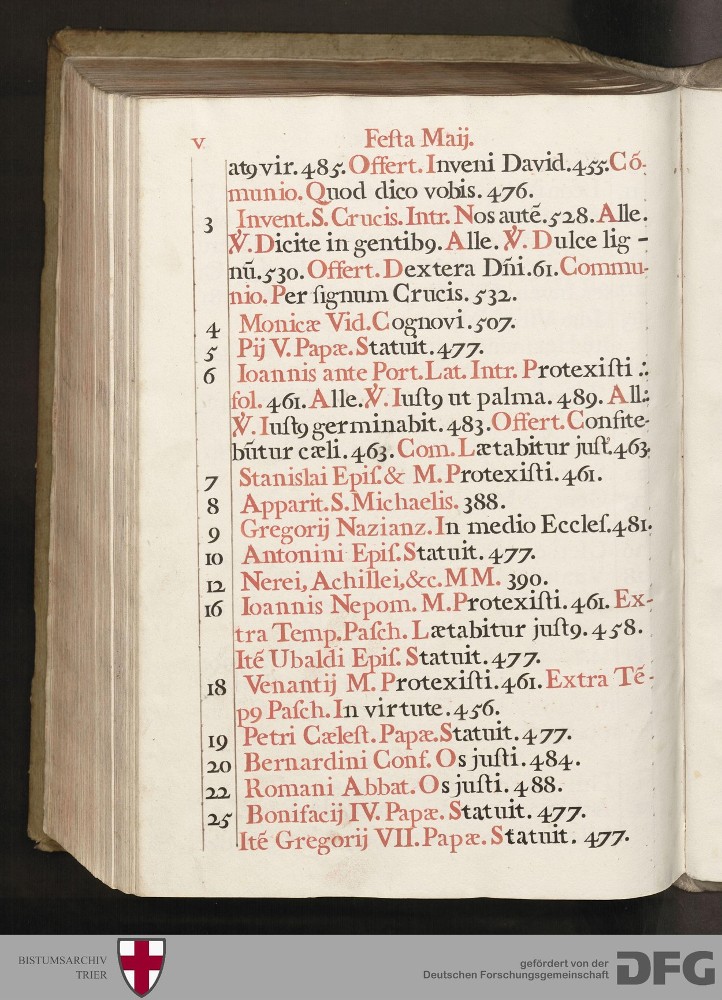 v Festa Maij.
atꝯ vir. 485. Offert. Inveni David. 455. Cõ-
munio. Quod dico vobis. 476.
3 Invent. S. Crucis. Intr. Nos autẽ. 528. Alle.
℣. Dicite in gentibꝯ. Alle. ℣. Dulce lig-
nũ. 530. Offert. Dextera Dñi. 61. Commu-
nio. Per signum Crucis. 532.
4 Monicæ Vid. Cognovi. 507.
5 Pij V. Papæ. Statuit. 477.
6 Ioannis ante Port. Lat. Intr. Protexisti .:
fol. 461. Alle. ℣. Iustꝯ ut palma. 489. All.:
℣. Iustꝯ germinabit. 483. Offert. Confite-
bũtur cæli. 463. Com. Lætabitur just. 463.
7 Stanislai Epis. & M. Protexisti. 461.
8 Apparit. S. Michaelis. 388.
9 Gregorij Nazianz. In medio Eccles. 481.
10 Antonini Epis. Statuit. 477.
12 Nerei, Achillei, &c. MM. 390.
16 Ioannis Nepom. M. Protexisti. 461. Ex-
tra Temp. Pasch. Lætabitur justꝯ. 458.
Itẽ Ubaldi Epis. Statuit. 477.
18 Venantij M. Protexisti. 461. Extra Tẽ-
pꝯ Pasch. In virtute. 456.
19 Petri Cælest. Papæ. Statuit. 477.
20 Bernardini Conf. Os justi. 484.
22 Romani Abbat. Os justi. 488.
25 Bonifacij IV. Papæ. Statuit. 477.
Itẽ Gregorij VII. Papæ. Statuit. 477.
BISTUMSARCHIV
TRIER
gefördert von der
Deutschen Forschungsgemeinschaft
DFG